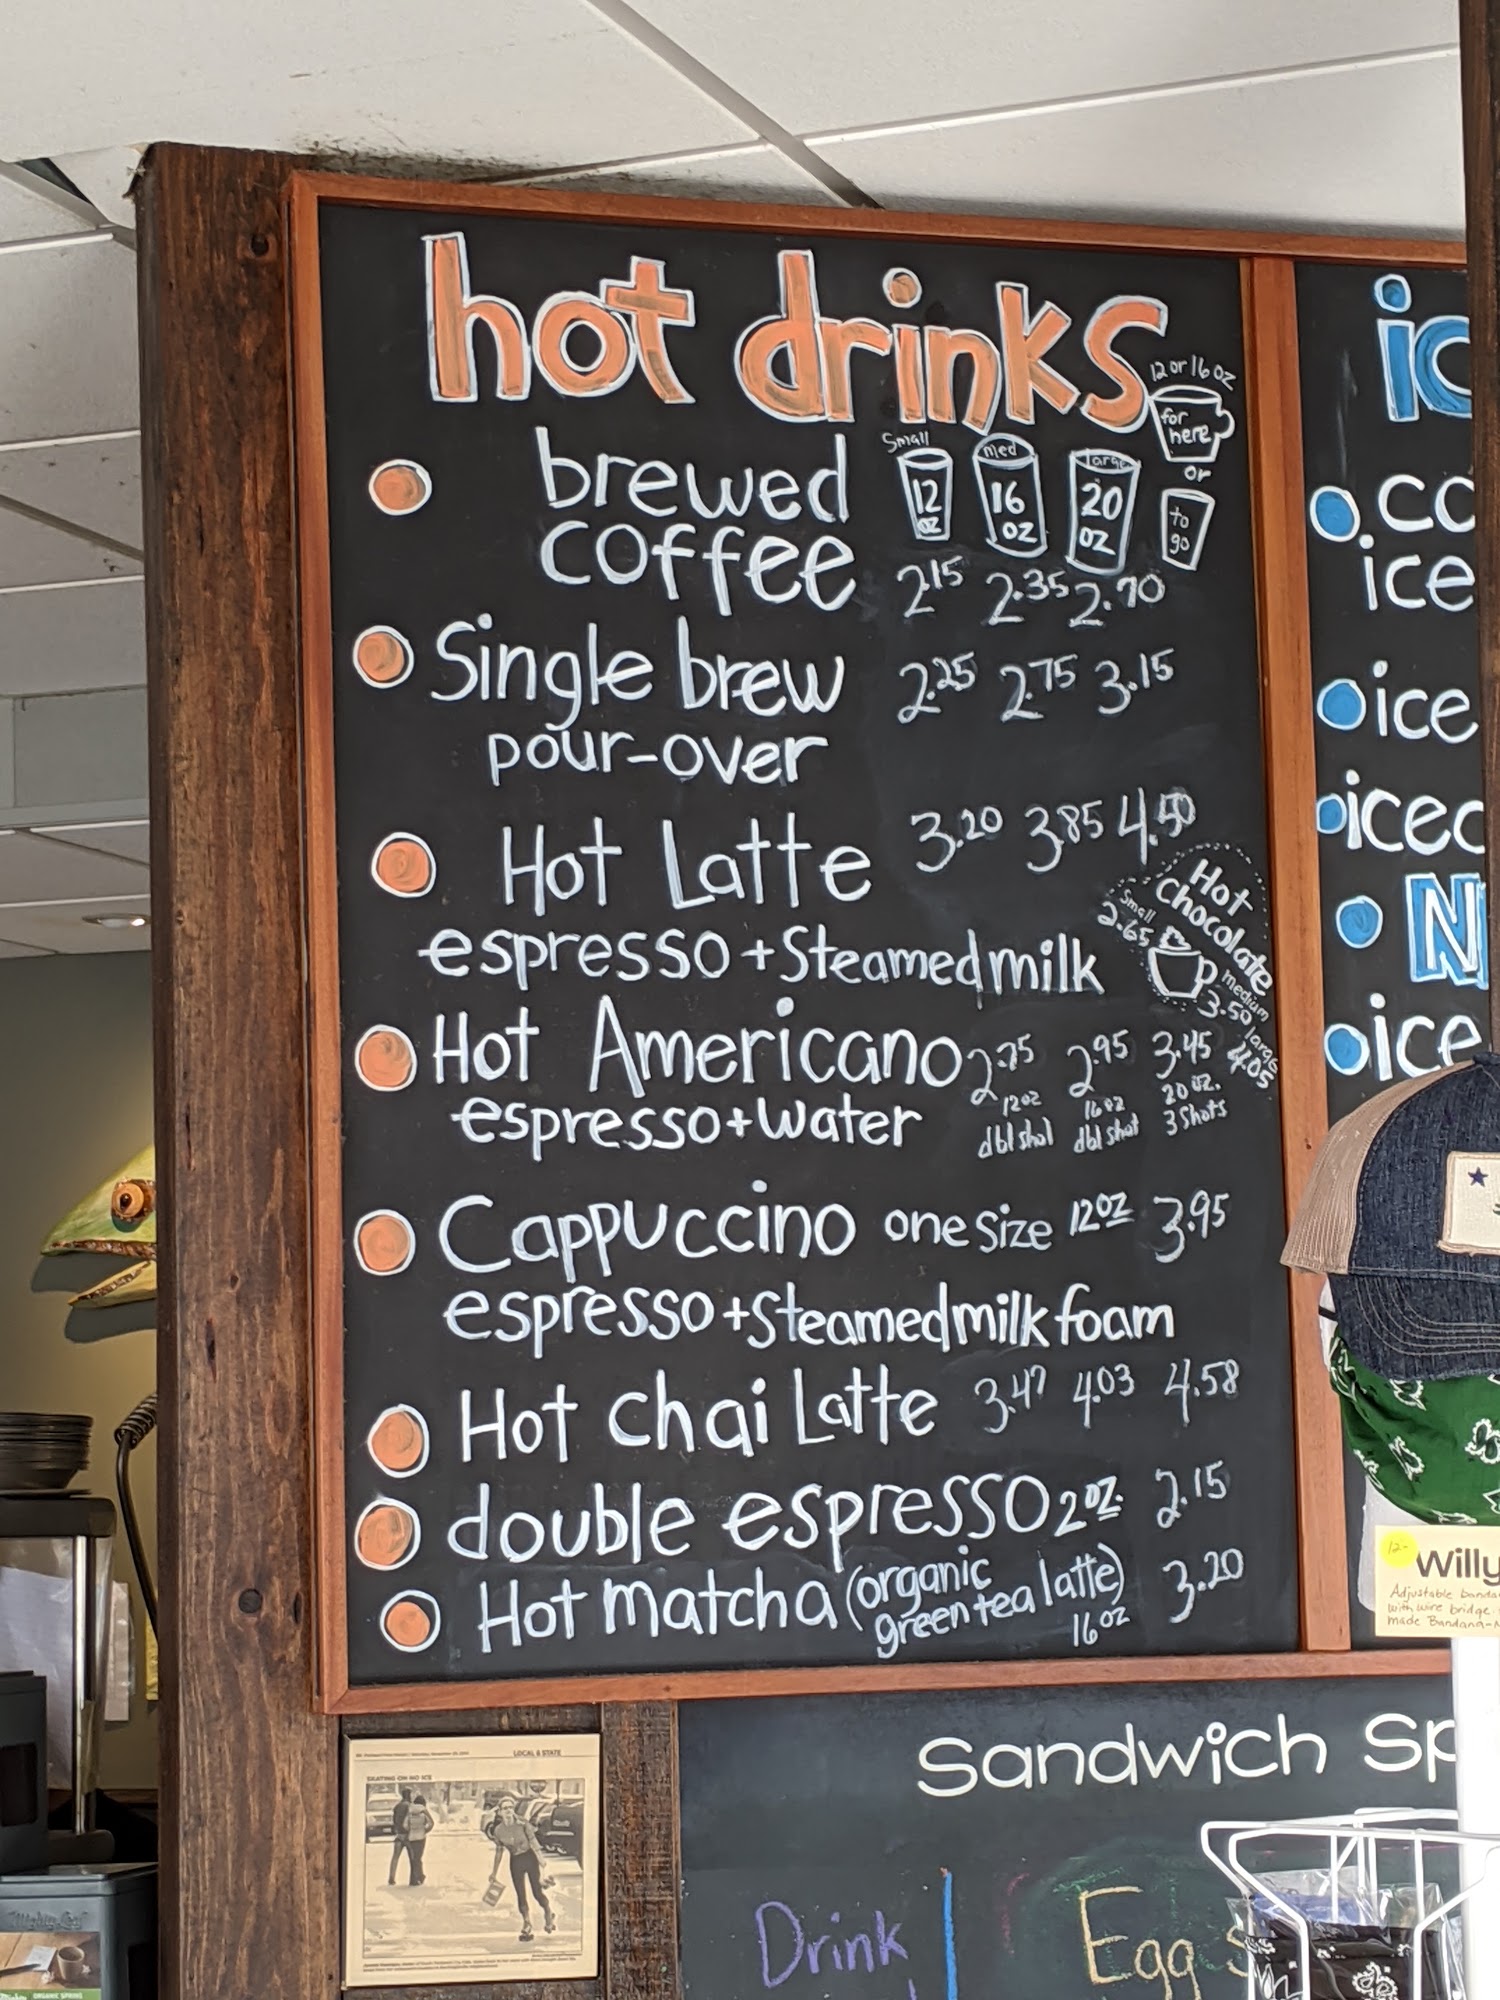 hot drinks
12 or 16 oz
for here
or
to go
Small
12 oz
med
16 oz
large
20 oz
brewed
coffee
2.15 2.35 2.70
Single brew 2.25 2.75 3.15
pour-over
Hot Latte 3.20 3.85 4.50
espresso + Steamed milk
Hot Chocolate
Small 2.65
medium 3.50
large 4.05
Hot Americano 2.75 2.95 3.45
espresso + water
12oz dbl shot
16oz dbl shot
20 oz. 3 shots
Cappuccino one size 12oz 3.95
espresso + Steamed milk foam
Hot chai Latte 3.47 4.03 4.58
double espresso 2 oz. 2.15
Hot matcha (organic green tea latte) 3.20
16 oz
ic
co
ice
ice
iced
N
ice
12-
Willy
Adjustable banda
with wire bridge.
made Bandana-
Sandwich Sp
Drink
Egg
LOCAL & STATE
SKATING ON NO ICE
Mighty Leaf
ORGANIC SPRING